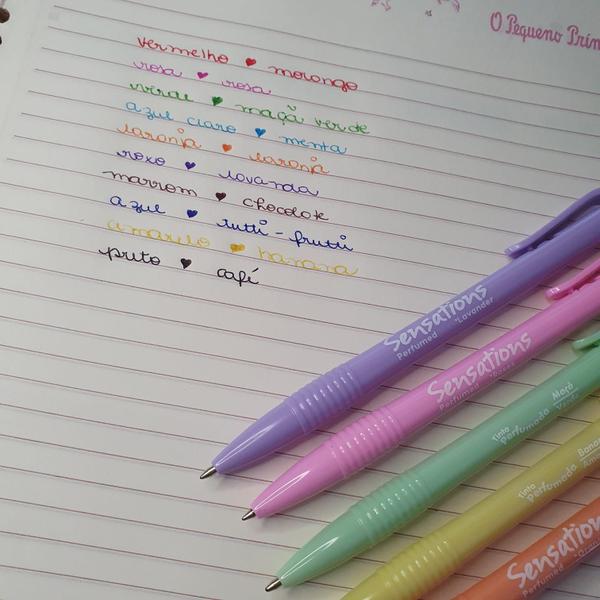 O Pequeno Prín
vermelho ♥ morango
rosa ♥ rosa
verde ♥ maçã verde
azul claro ♥ menta
laranja ♥ laranja
roxo ♥ lavanda
marrom ♥ chocolate
azul ♥ tutti-frutti
amarelo ♥ banana
preto ♥ café
Sensations
Perfumed Lavander
Sensations
Perfumed
Tinta Maçã
Perfumada Verde
Tinta Banan
Perfumada Am
Sensation
Perfumed